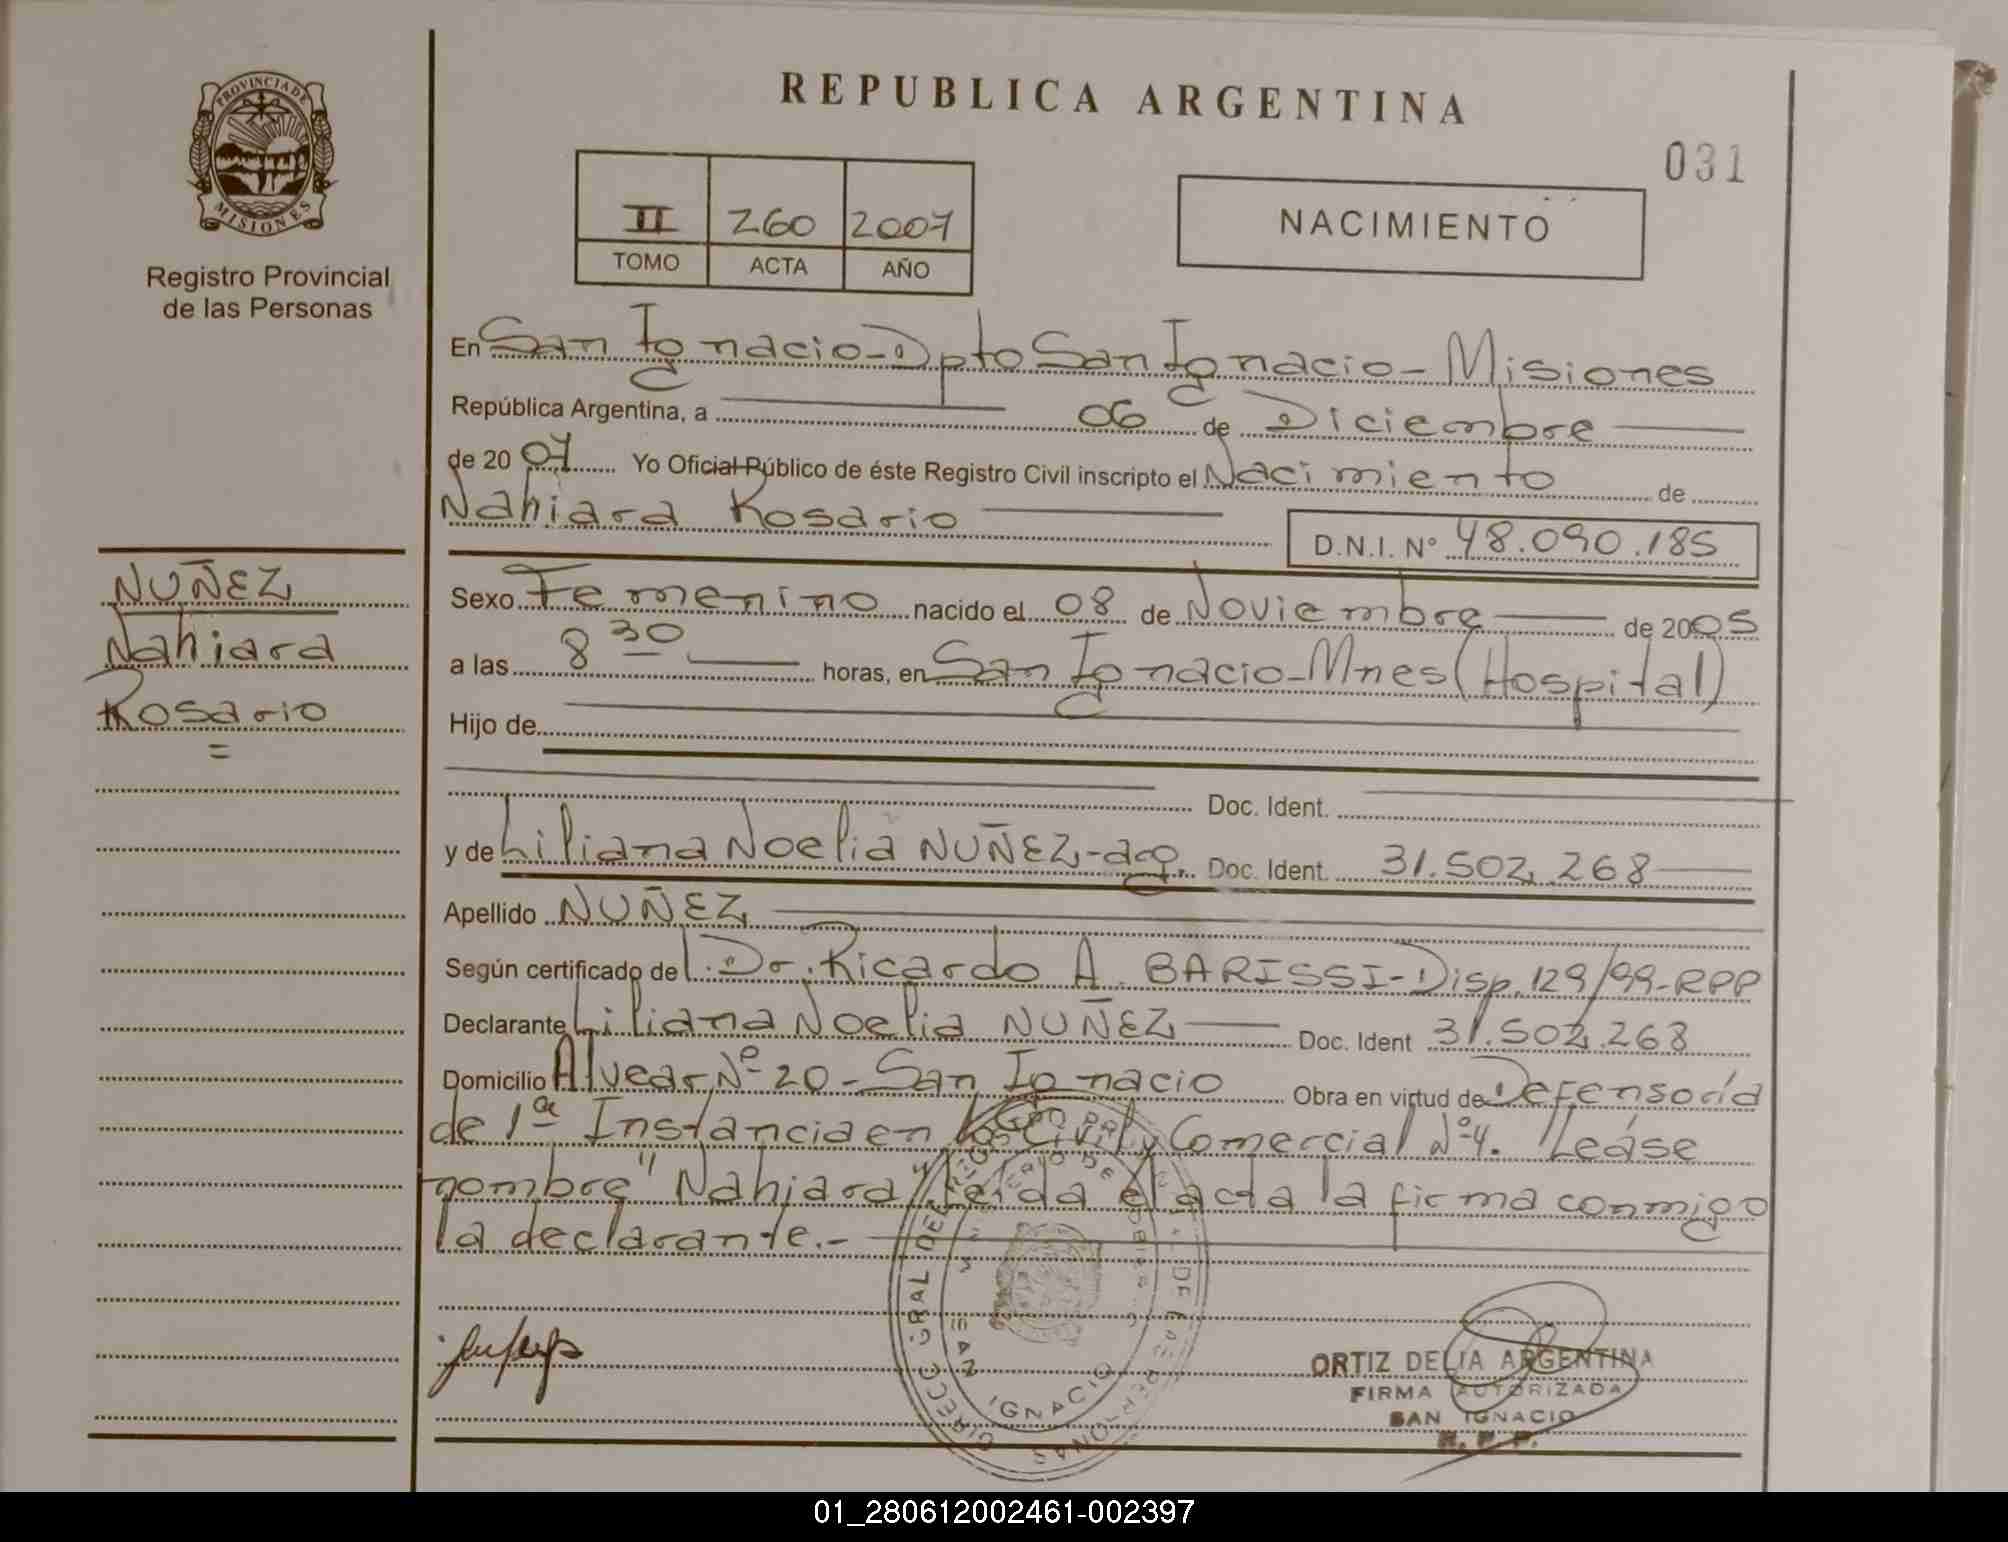 REPUBLICA ARGENTINA
031
PROVINCIA DE
MISIONES
Registro Provincial
de las Personas
II 260 2007
TOMO ACTA AÑO
NACIMIENTO
En San Ignacio-Dpto San Ignacio-Misiones
República Argentina, a 06 de Diciembre
de 2007 Yo Oficial Público de éste Registro Civil inscripto el Nacimiento de
Nahiara Rosario
D.N.I. N° 48.090.185
NUÑEZ
Nahiara
Rosario
=
Sexo Femenino nacido el 08 de Noviembre de 2005
a las 8 30 horas, en San Ignacio-Mnes (Hospital)
Hijo de
Doc. Ident.
y de Liliana Noelia NUÑEZ-arg. Doc. Ident. 31.502.268
Apellido NUÑEZ
Según certificado del Dr. Ricardo A. BARISSI-Disp. 129/99-RPP
Declarante Liliana Noelia NUÑEZ Doc. Ident 31.502.268
Domicilio Alvear Nº 20-San Ignacio Obra en virtud de Defensoría
de 1ª Instancia en lo Civil y Comercial Nº 4. Leáse
nombre "Nahiara". Leída el acta la firma conmigo
la declarante.-
SAN IGNACIO
ORTIZ DELIA ARGENTINA
FIRMA AUTORIZADA
SAN IGNACIO
R. P. P.
01_280612002461-002397